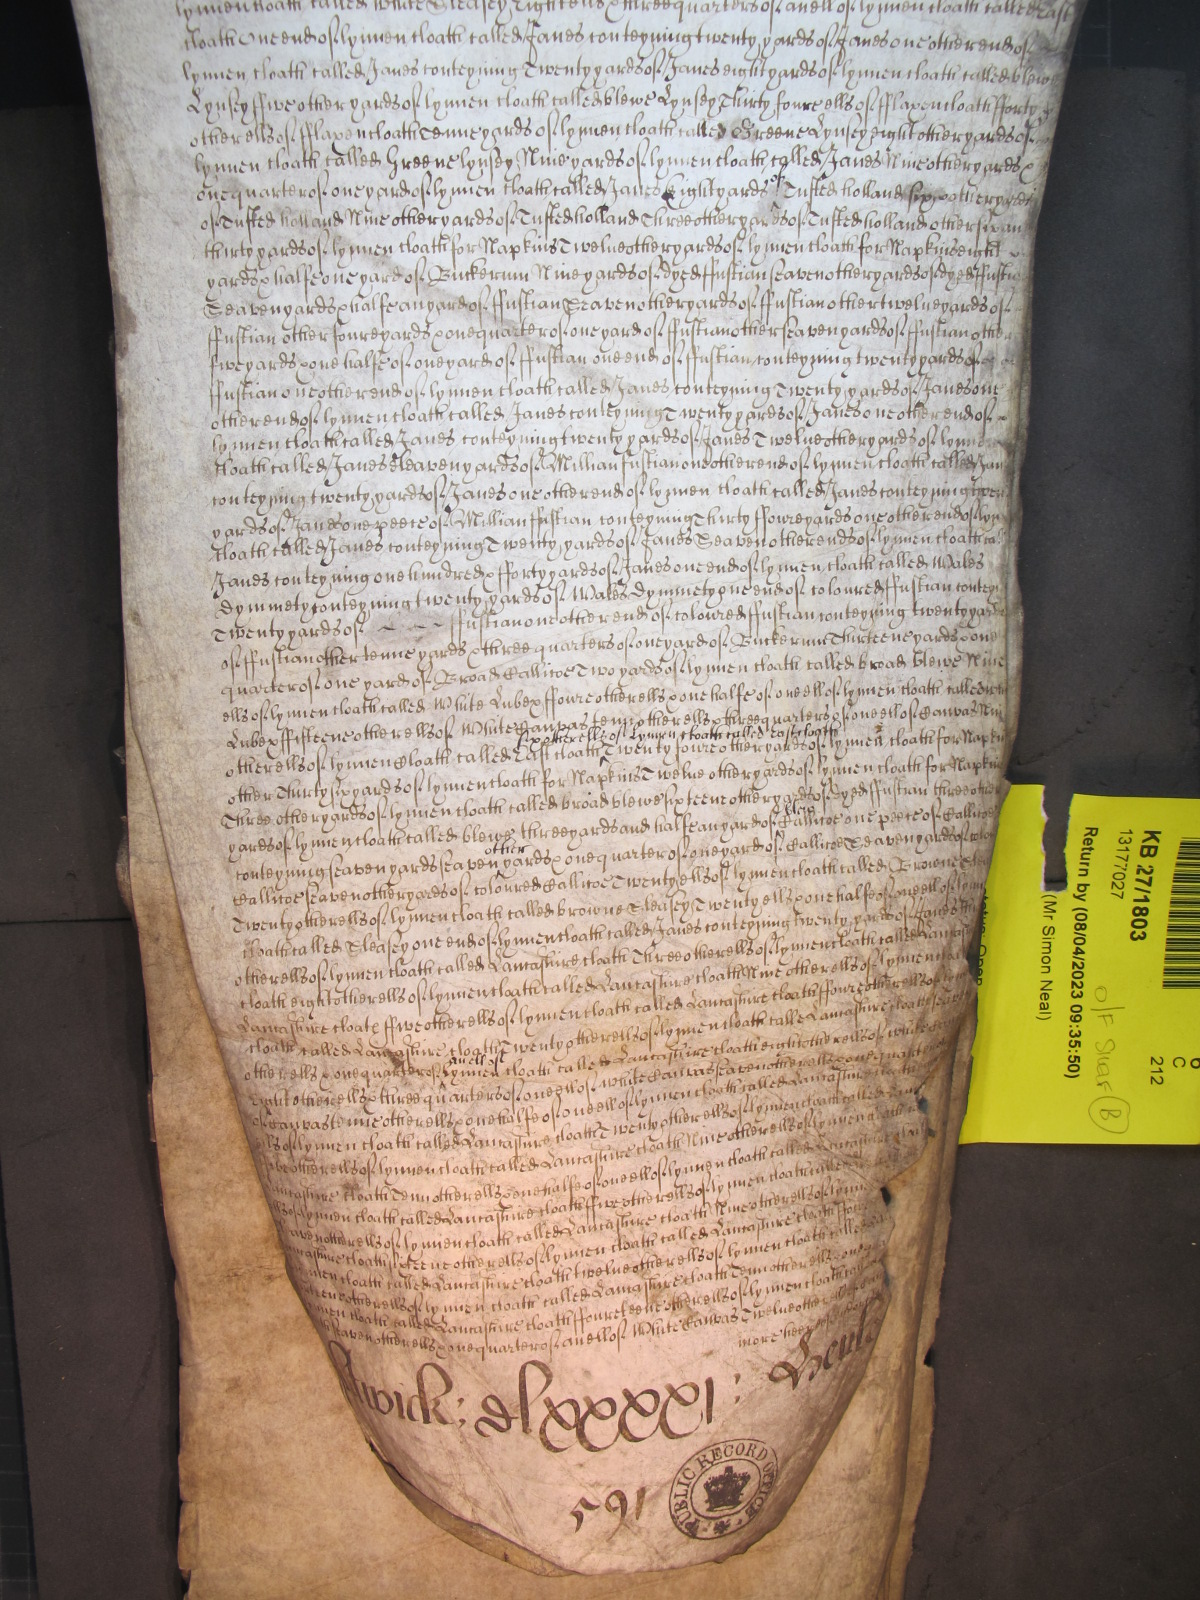 lynnen cloath called white Sleasey Eight ells x three quarters of an ell of lynnen cloath called East
cloath One end of lynnen cloath called Janes conteyning twenty yards of Janes one other end of
lynnen cloath called Janes conteyning Twenty yards of Janes eight yards of lynnen cloath called blew
Lynsey ffive other yards of lynnen cloath called blewe Lynsey Thirty foure ells of fflaxen cloath fforty
other ells of fflaxen cloath Tenne yards of lynnen cloath called Greene Lynsey eight other yards of
lynnen cloath called Greene Lynsey Nine yards of lynnen cloath called Janes Nine other yards x
one quarter of one yard of lynnen cloath called Janes Eight yards of Tufted holland six other yards
of Tufted holland Nine other yards of Tufted holland Three other yards of Tufted holland other six and
thirty yards of lynnen cloath for Napkins Twelve other yards of lynnen cloath for Napkins eight
yards x halfe one yard of Buckerum Nine yards of dyed ffustian seaven other yards of dyed ffustian
Seaven yards x halfe an yard of ffustian Seaven other yards of ffustian other twelve yards of
ffustian other foure yards x one quarter of one yard of ffustian other seaven yards of ffustian other
five yards x one halfe of one yard of ffustian one end of ffustian conteyning twenty yards of
ffustian one other end of lynnen cloath called Janes conteyning Twenty yards of Janes one
other end of lynnen cloath called Janes conteyning Twenty yards of Janes one other end of
lynnen cloath called Janes conteyning twenty yards of Janes Twelve other yards of lynnen
cloath called Janes Eleaven yards of Millian fustian one other end of lynnen cloath called Jan
conteyning twenty yards of Janes one other end of lynnen cloath called Janes conteyning twen
yards of Janes one peece of Millian fustian conteyning Thirty ffoure yards one other end of lyn
cloath called Janes conteyning Twenty yards of Janes Seaven other ends of lynnen cloath ca
Janes conteyning one hundred x fforty yards of Janes one end of lynnen cloath called Wales
Dymmety conteyning twenty yards of Wales Dymmety one end of coloured ffustian conteyn
Twenty yards of ffustian one other end of coloured ffustian conteyning twenty yards
of ffustian other tenne yards x three quarters of one yard of Buckerum Thirteene yards x one
quarter of one yard of Broad Callicoe Two yards of lynnen cloath called broad blewe Nine
ells of lynnen cloath called White Lubex ffoure other ells x one halfe of one ell of lynnen cloath called
Lubex ffifteene other ells of White Canvas tenn other ells x three quarters of one ell of Canvas Nin
six other ells of lynnen cloath called East cloath
other ells of lynnen Cloath called East cloath Twenty foure other yards of lynnen cloath for Napkin
other Thirty six yards of lynnen cloath for Napkins Twelve other yards of lynnen cloath for Napkin
Three other yards of lynnen cloath called broad blewe sixteene other yards of dyed ffustian three other
yards of lynnen cloath called blewe three yards and halfe an yard of Callicoe one peece of Callicoe
conteyning seaven yards seaven other yards x one quarter of one yard of Callicoe Seaven yards of
Callicoe seaven other yards of coloured Callicoe Twenty ells of lynnen cloath called Browne
Twenty other ells of lynnen cloath called browne Sleasey Twenty ells x one halfe of one ell of lynn
cloath called Sleasey one end of lynnen cloath called Janes conteyning twenty yards of Janes
other ells of lynnen cloath called Lancashire cloath Three other ells of lynnen cloath called Lancas
cloath eight other ells of lynnen cloath called Lancashire cloath Nine other ells of lynnen
Lancashire cloate ffive other ells of lynnen cloath called Lancashire cloath ffoure other ells of lynnen
cloath called Lancashire cloath Twenty other ells of lynnen cloath called Lancashire cloath
an ell of
other ells x one quarter of lynnen cloath called Lancashire cloath eight other ells of white
Eight other ells x three quarters of one ell of white Canvas seaven other ells x one quarter
of Canvas tenne other ells x one halfe of one ell of lynnen cloath called Lancashire cloath
ells of lynnen cloath called Lancashire cloath Twenty other ells of lynnen cloath called
five other ells of lynnen cloath called Lancashire cloath Nine other ells of lynnen
Lancashire cloath Tenn other ells x one halfe of one ell of lynnen cloath called Lancashire
ells of lynnen cloath called Lancashire cloath ffive other ells of lynnen cloath called
seaven other ells of lynnen cloath called Lancashire cloath Nine other ells of lynn
cloath sixteene other ells of lynnen cloath called Lancashire cloath
lynnen cloath called Lancashire cloath twelve other ells of lynnen cloath called
other ells of lynnen cloath called Lancashire cloath Tenn other ells x one
lynnen cloath called Lancashire cloath ffoureteene other ells of lynnen cloath
seaven other ells x one quarter of an ell of White Canvas Twelve other
more
wick: dlxxxxi:
591
PUBLIC RECORD OFFICE
KB 27/1803
13177/027
Return by (08/04/2023 09:35:50)
(Mr Simon Neal)
C
212
B